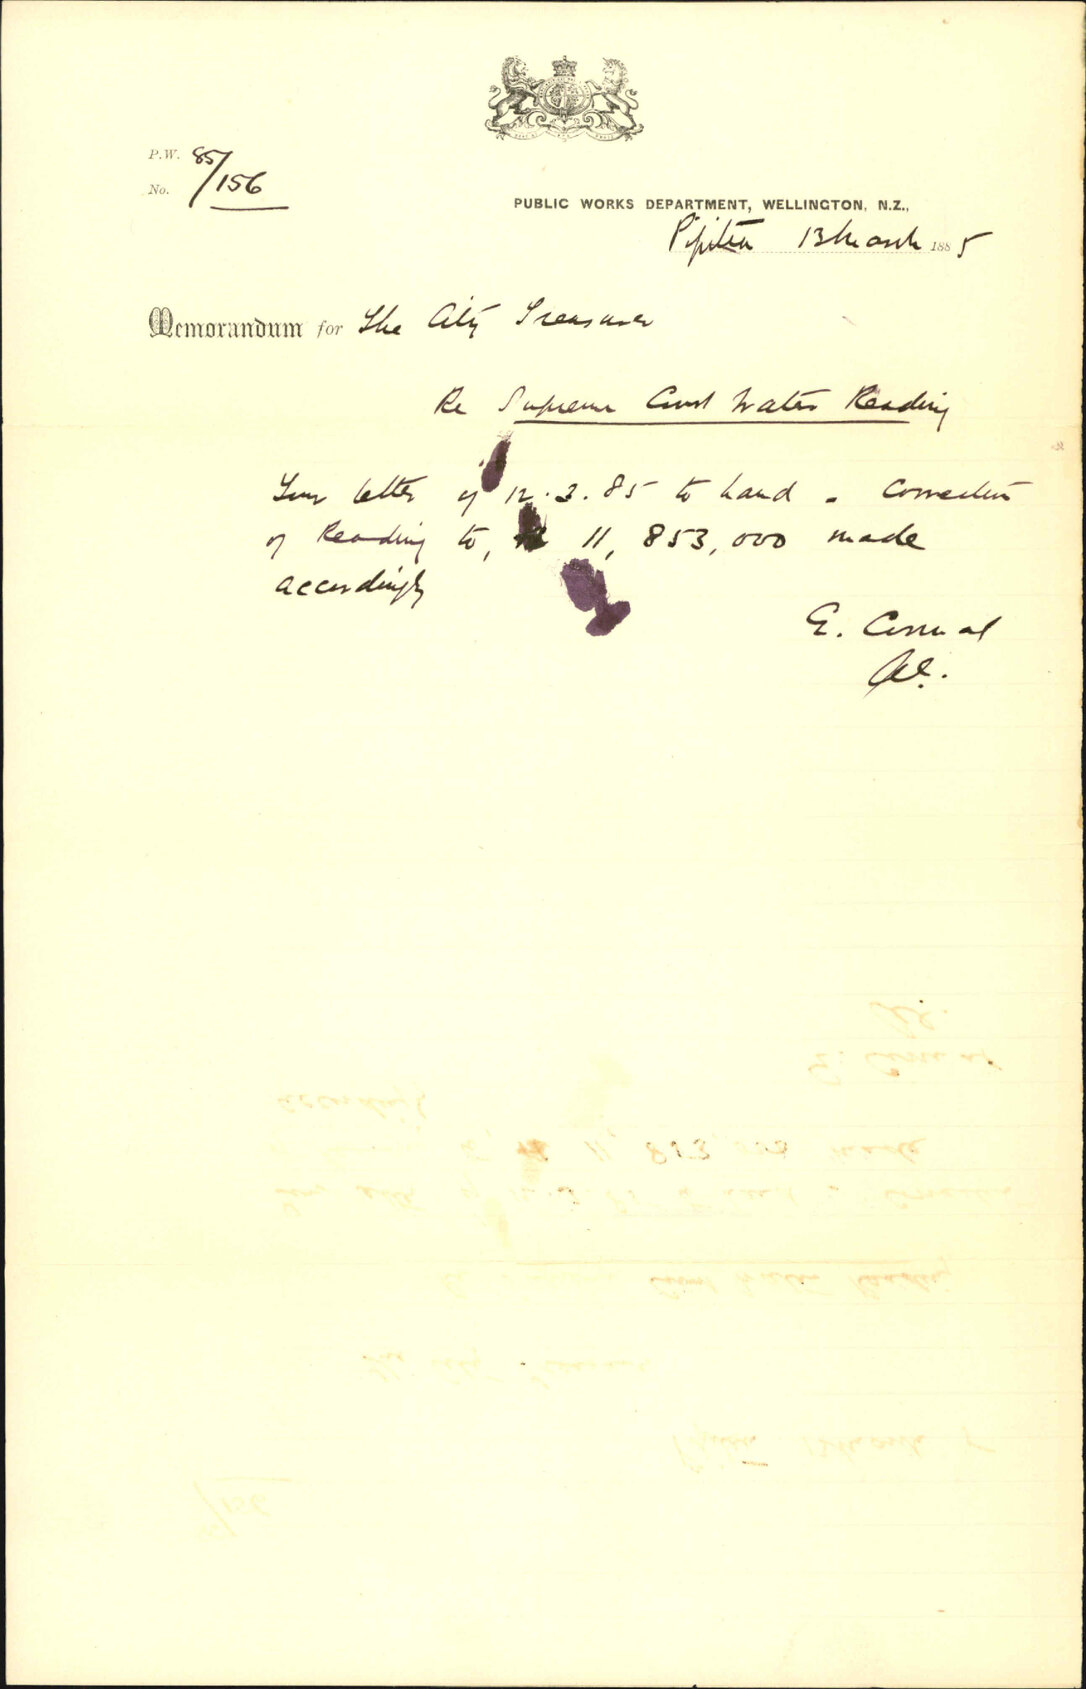 P.W. 85/156
No.
PUBLIC WORKS DEPARTMENT, WELLINGTON, N.Z.,
Pipitea 13 March 1885
Memorandum for The City Treasurer
Re Supreme Court Water Reading
Your letter of 12.3.85 to hand. Correction
of Reading to, 11,853,000 made
accordingly
E.